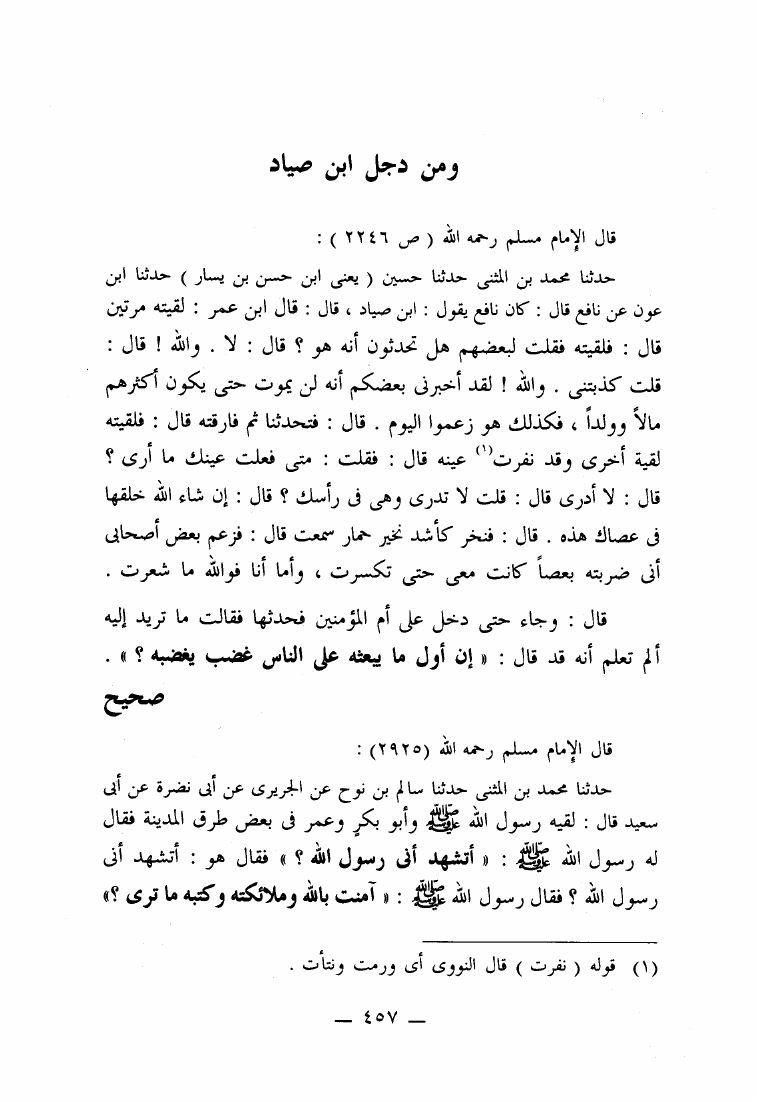 ومن دجل ابن صياد
قال الإمام مسلم رحمه الله ( ص ٢٢٤٦ ) :
حدثنا محمد بن المثنى حدثنا حسين ( يعنى ابن حسن بن يسار ) حدثنا ابن
عون عن نافع قال : كان نافع يقول : ابن صياد ، قال : قال ابن عمر : لقيته مرتين
قال : فلقيته فقلت لبعضهم هل تحدثون أنه هو ؟ قال : لا . والله ! قال :
قلت كذبتنى . والله ! لقد أخبرنى بعضكم أنه لن يموت حتى يكون أكثرهم
مالاً وولداً ، فكذلك هو زعموا اليوم . قال : فتحدثنا ثم فارقته قال : فلقيته
لقية أخرى وقد نفرت(١) عينه قال : فقلت : متى فعلت عينك ما أرى ؟
قال : لا أدرى قال : قلت لا تدرى وهى فى رأسك ؟ قال : إن شاء الله خلقها
فى عصاك هذه . قال : فنخر كأشد نخير حمار سمعت قال : فزعم بعض أصحابى
أنى ضربته بعصاً كانت معى حتى تكسرت ، وأما أنا فوالله ما شعرت .
قال : وجاء حتى دخل على أم المؤمنين فحدثها فقالت ما تريد إليه
ألم تعلم أنه قد قال : « إن أول ما يبعثه على الناس غضب يغضبه ؟ » .
صحيح
قال الإمام مسلم رحمه الله (٢٩٢٥) :
حدثنا محمد بن المثنى حدثنا سالم بن نوح عن الجريرى عن أبى نضرة عن أبى
سعيد قال : لقيه رسول الله ﷺ وأبو بكرٍ وعمر فى بعض طرق المدينة فقال
له رسول الله ﷺ : « أتشهد أنى رسول الله ؟ » فقال هو : أتشهد أنى
رسول الله ؟ فقال رسول الله ﷺ : « آمنت بالله وملائكته وكتبه ما ترى ؟»
(١) قوله ( نفرت ) قال النووى أى ورمت ونتأت .
— ٤٥٧ —